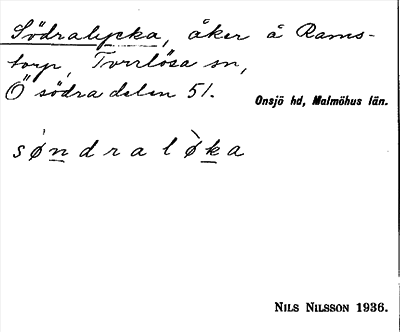 Södralycka, åker å Rams-
torp, Torrlösa sn,
Ö södra delen 51.
Onsjö hd, Malmöhus län.
sø̀ndralø̀ka
NILS NILSSON 1936.